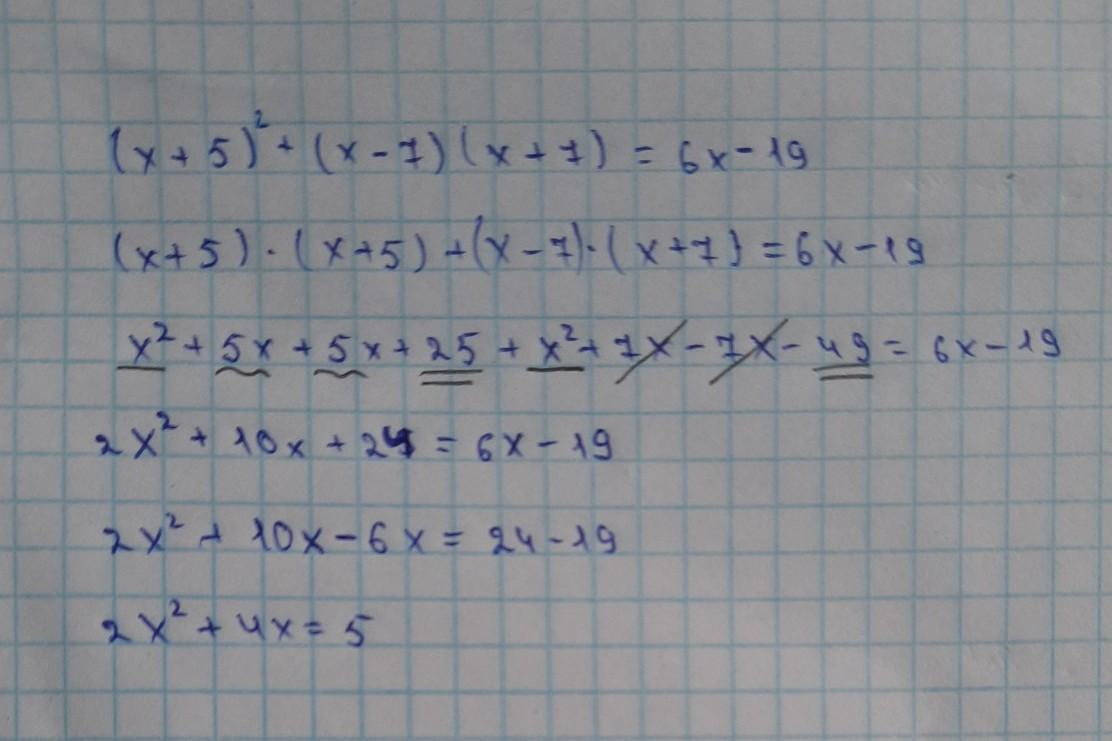 (x + 5)² + (x - 7)(x + 7) = 6x - 19
(x + 5) · (x + 5) + (x - 7) · (x + 7) = 6x - 19
x² + 5x + 5x + 25 + x² + 7x - 7x - 49 = 6x - 19
2x² + 10x + 24 = 6x - 19
2x² + 10x - 6x = 24 - 19
2x² + 4x = 5